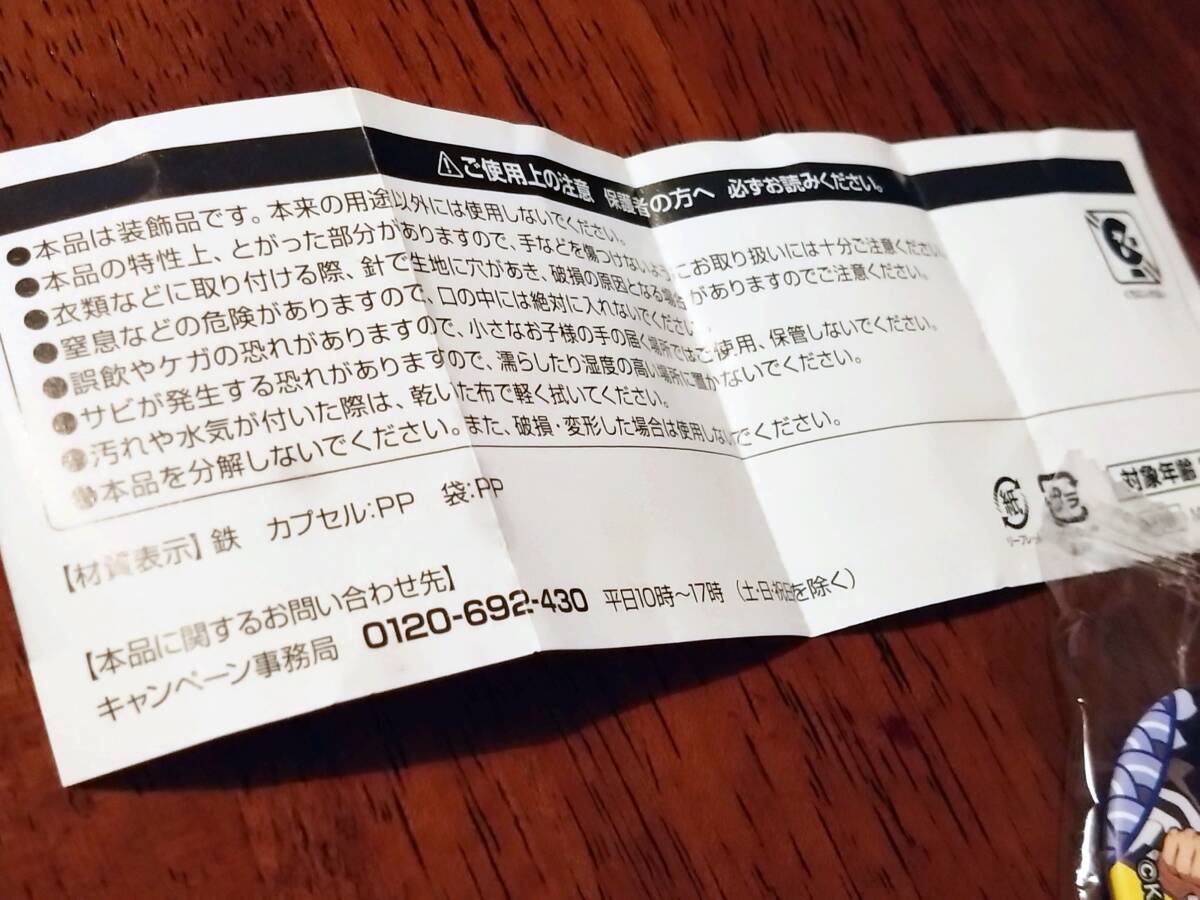 ⚠ご使用上の注意 保護者の方へ 必ずお読みください。
●本品は装飾品です。本来の用途以外には使用しないでください。
●本品の特性上、とがった部分がありますので、手などを傷つけないようにお取り扱いには十分ご注意ください
●衣類などに取り付ける際、針で生地に穴があき、破損の原因となる場合がありますのでご注意ください。
●窒息などの危険がありますので、口の中には絶対に入れないでください
●誤飲やケガの恐れがありますので、小さなお子様の手の届く場所ではご使用、保管しないでください。
●サビが発生する恐れがありますので、濡らしたり湿度の高い場所に置かないでください。
●汚れや水気が付いた際は、乾いた布で軽く拭いてください。
●本品を分解しないでください。また、破損・変形した場合は使用しないでください。
【材質表示】鉄 カプセル:PP 袋:PP
紙
プラ
リーフレット
対象年齢
【本品に関するお問い合わせ先】
キャンペーン事務局 0120-692-430 平日10時〜17時 (土・日・祝日を除く)
©K